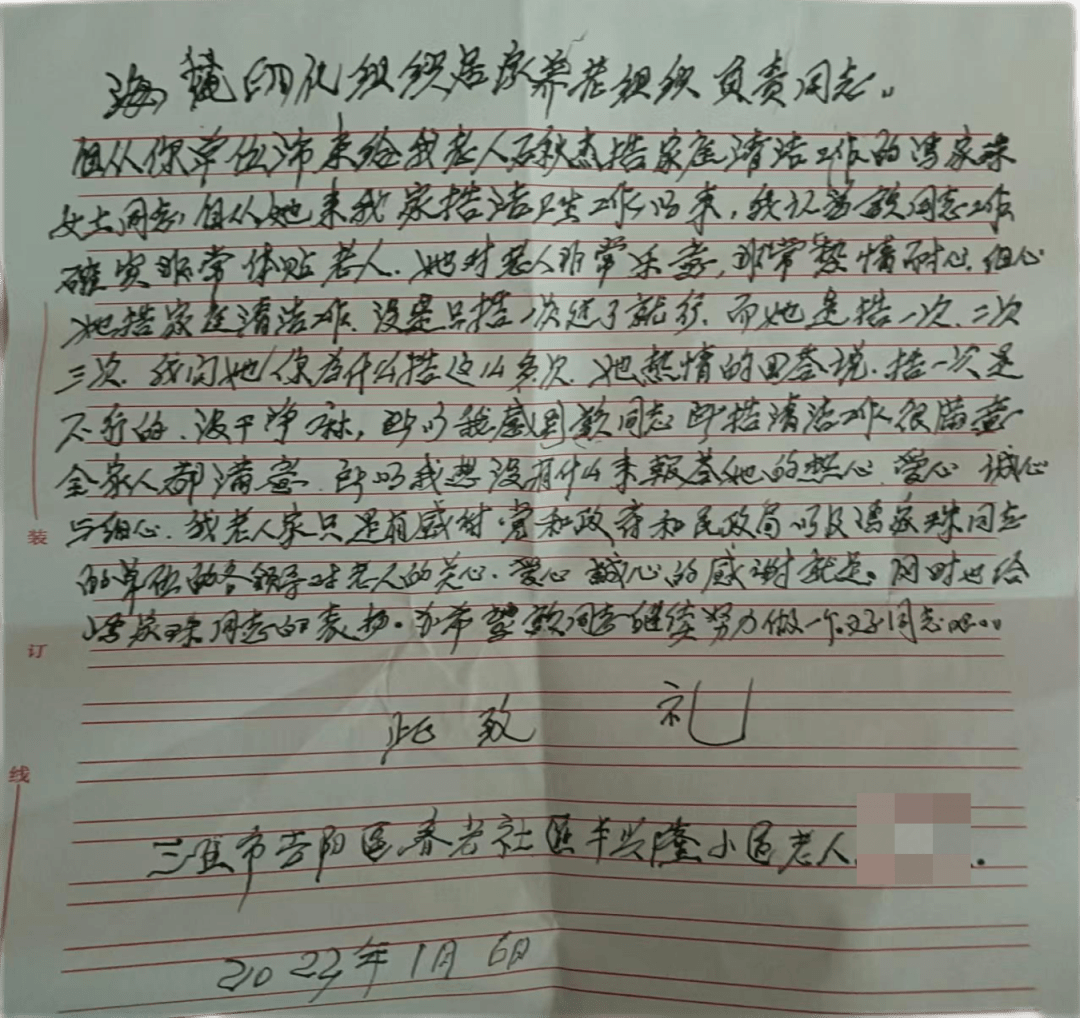 组织居家养老组织负责同志。
自从你单位派来给我老人石秋杰搞家庭清洁工作的冯家珠
女士同志,自从她来我家搞洁卫生工作以来,我认为该同志工作
确实非常体贴老人.她对老人非常乐意,非常热情耐心.细心
她搞家庭清洁工作.没是只搞一次过了就行.而她是搞一次、二次
三次.我问她你为什么搞这么多次.她热情的回答说.搞一次是
不行的.没干净嘛,所以我感到该同志所搞清洁工作很满意
全家人都满意.所以我想没有什么来报答她的热心.爱心 诚心
与细心.我老人家只是有感谢党和政府和民政局以及冯家珠同志
的单位的各领导对老人的关心.爱心 诚心的感谢就是。同时也给
冯家珠同志的表扬。亦希望该同志继续努力做一个好同志
此致 礼
三亚市吉阳区 社区丰兴隆小区老人
1月6日
装
订
线